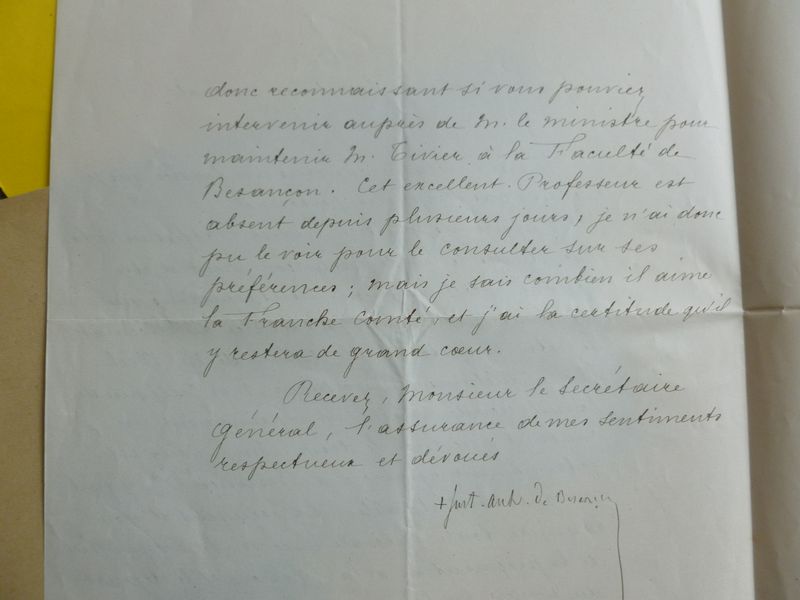 donc reconnaissant si vous pouviez
intervenir auprès de M. le ministre pour
maintenir M. Tivier à la Faculté de
Besançon. Cet excellent Professeur est
absent depuis plusieurs jours, je n'ai donc
pu le voir pour le consulter sur ses
préférences ; mais je sais combien il aime
la Franche Comté, et j'ai la certitude qu'il
y restera de grand cœur.
Recevez, Monsieur le Secrétaire
Général, l'assurance de mes sentiments
respectueux et dévoués
+ just. arch. de Besançon